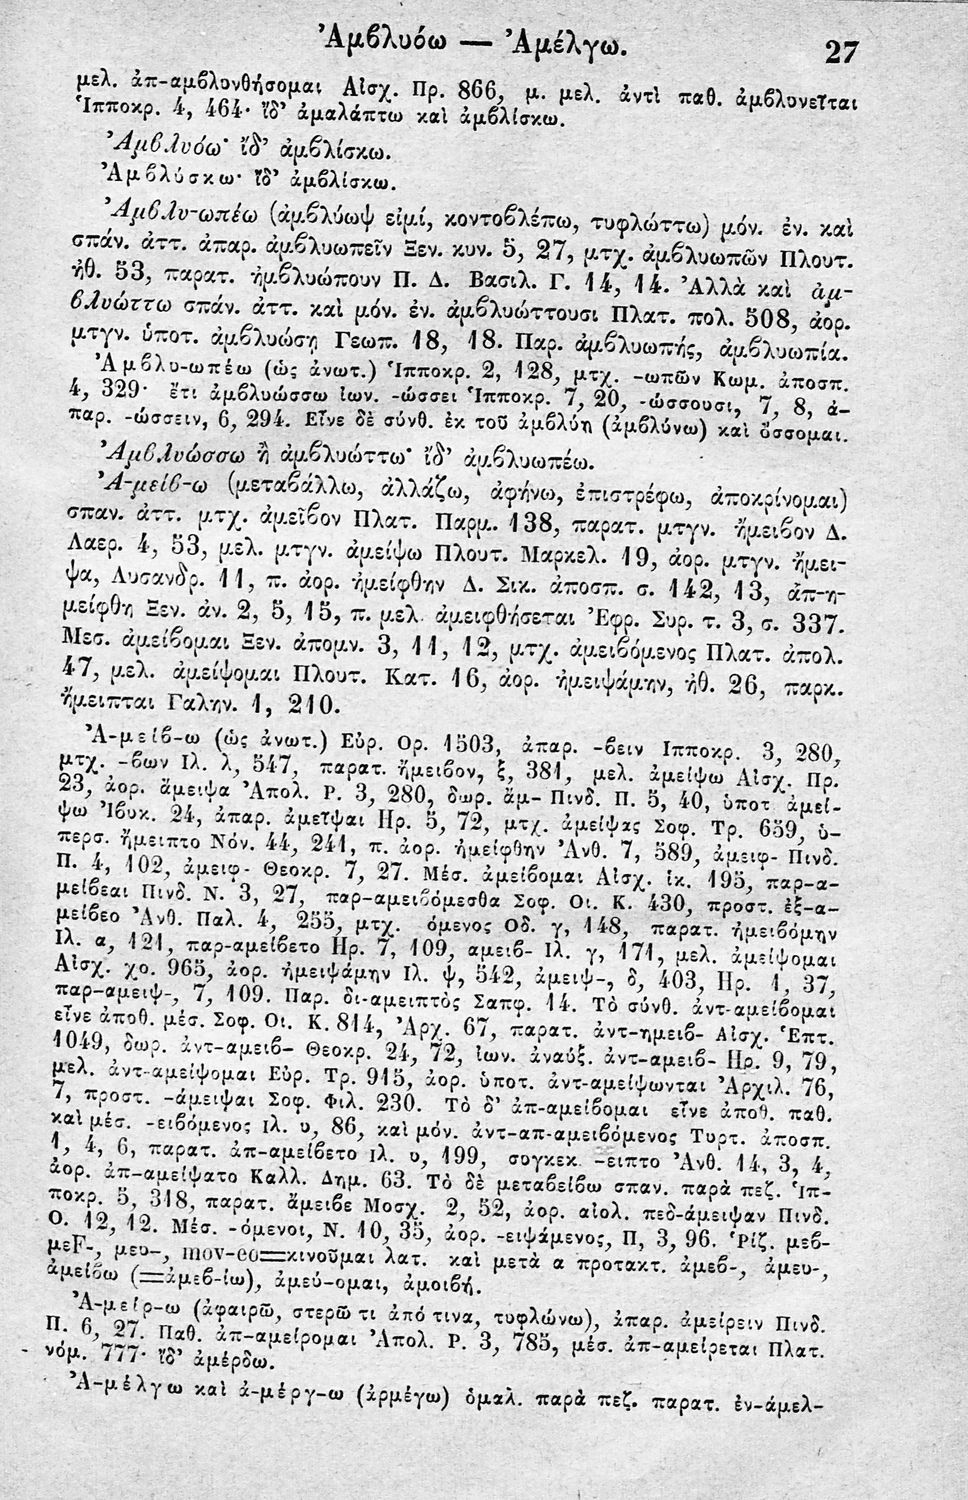 Ἀμβλυόω — Ἀμέλγω. 27
μελ. ἀπ-αμβλυνθήσομαι Αἰσχ. Πρ. 866, μ. μελ. ἀντὶ παθ. ἀμβλυνεῖται
Ἱπποκρ. 4, 464· ἴδ' ἀμαλάπτω καὶ ἀμβλίσκω.
Ἀμβλυόω· ἴδ' ἀμβλίσκω.
Ἀμβλύσκω· ἴδ' ἀμβλίσκω.
Ἀμβλυ-ωπέω (ἀμβλύωψ εἰμί, κοντοβλέπω, τυφλώττω) μόν. ἐν. καὶ
σπάν. ἀττ. ἀπαρ. ἀμβλυωπεῖν Ξεν. κυν. 5, 27, μτχ. ἀμβλυωπῶν Πλουτ.
ἠθ. 53, παρατ. ἠμβλυώπουν Π. Δ. Βασιλ. Γ. 14, 14. Ἀλλὰ καὶ ἀμ-
βλυώττω σπάν. ἀττ. καὶ μόν. ἐν. ἀμβλυώττουσι Πλατ. πολ. 508, ἀορ.
μτγν. ὑποτ. ἀμβλυώσῃ Γεωπ. 18, 18. Παρ. ἀμβλυωπής, ἀμβλυωπία.
Ἀμβλυ-ωπέω (ὡς ἀνωτ.) Ἱπποκρ. 2, 128, μτχ. -ωπῶν Κωμ. ἀποσπ.
4, 329· ἔτι ἀμβλυώσσω ἰων. -ώσσει Ἱπποκρ. 7, 20, -ώσσουσι, 7, 8, ἀ-
παρ. -ώσσειν, 6, 294. Εἶνε δὲ σύνθ. ἐκ τοῦ ἀμβλύη (ἀμβλύνω) καὶ ὄσσομαι.
Ἀμβλυώσσω ἢ ἀμβλυώττω· ἴδ' ἀμβλυωπέω.
Ἀ-μείβ-ω (μεταβάλλω, ἀλλάζω, ἀφήνω, ἐπιστρέφω, ἀποκρίνομαι)
σπαν. ἀττ. μτχ. ἀμεῖβον Πλατ. Παρμ. 138, παρατ. μτγν. ἤμειβον Δ.
Λαερ. 4, 53, μελ. μτγν. ἀμείψω Πλουτ. Μαρκελ. 19, ἀορ. μτγν. ἤμει-
ψα, Λυσανδρ. 11, π. ἀορ. ἠμείφθην Δ. Σικ. ἀποσπ. σ. 142, 13, ἀπ-η-
μείφθη Ξεν. ἀν. 2, 5, 15, π. μελ. ἀμειφθήσεται Ἐφρ. Συρ. τ. 3, σ. 337.
Μεσ. ἀμείβομαι Ξεν. ἀπομν. 3, 11, 12, μτχ. ἀμειβόμενος Πλατ. ἀπολ.
47, μελ. ἀμείψομαι Πλουτ. Κατ. 16, ἀορ. ἠμειψάμην, ἠθ. 26, παρκ.
ἤμειπται Γαλην. 1, 210.
Ἀ-μείβ-ω (ὡς ἀνωτ.) Εὐρ. Ορ. 1503, ἀπαρ. -βειν Ιπποκρ. 3, 280,
μτχ. -βων Ιλ. λ, 547, παρατ. ἤμειβον, ξ, 381, μελ. ἀμείψω Αἰσχ. Πρ.
23, ἀορ. ἄμειψα Ἀπολ. Ρ. 3, 280, δωρ. ἄμ- Πινδ. Π. 5, 40, ὑποτ ἀμεί-
ψω Ἰβυκ. 24, ἀπαρ. ἀμεῖψαι Ηρ. 5, 72, μτχ. ἀμείψας Σοφ. Τρ. 659, ὑ-
περσ. ἤμειπτο Νόν. 44, 241, π. ἀορ. ἠμείφθην Ἀνθ. 7, 589, ἀμειφ- Πινδ.
Π. 4, 102, ἀμειφ- Θεοκρ. 7, 27. Μέσ. ἀμείβομαι Αἰσχ. ἱκ. 195, παρ-α-
μείβεαι Πινδ. Ν. 3, 27, παρ-αμειβόμεσθα Σοφ. Οι. Κ. 430, προστ. ἐξ-α-
μείβεο Ἀνθ. Παλ. 4, 255, μτχ. όμενος Οδ. γ, 148, παρατ. ἠμειβόμην
Ιλ. α, 121, παρ-αμείβετο Ηρ. 7, 109, αμειβ- Ιλ. γ, 171, μελ. ἀμείψομαι
Αἰσχ. χο. 965, ἀορ. ἠμειψάμην Ιλ. ψ, 542, ἀμειψ-, δ, 403, Ηρ. 1, 37,
παρ-αμειψ-, 7, 109. Παρ. δι-αμειπτὸς Σαπφ. 14. Τὸ σύνθ. ἀντ-αμείβομαι
εἶνε ἀποθ. μέσ. Σοφ. Οι. Κ. 814, Ἀρχ. 67, παρατ. ἀντ-ημειβ- Αἰσχ. Ἑπτ.
1049, δωρ. ἀντ-αμειβ- Θεοκρ. 24, 72, ἰων. ἀναύξ. ἀντ-αμειβ- Ηρ. 9, 79,
μελ. ἀντ-αμείψομαι Εὐρ. Τρ. 915, ἀορ. ὑποτ. ἀντ-αμείψωνται Ἀρχιλ. 76,
7, προστ. -άμειψαι Σοφ. Φιλ. 230. Τὸ δ' ἀπ-αμείβομαι εἶνε ἀποθ. παθ.
καὶ μέσ. -ειβόμενος Ιλ. υ, 86, καὶ μόν. ἀντ-απ-αμειβόμενος Τυρτ. ἀποσπ.
1, 4, 6, παρατ. ἀπ-αμείβετο Ιλ. υ, 199, συγκεκ. -ειπτο Ἀνθ. 14, 3, 4,
ἀορ. ἀπ-αμείψατο Καλλ. Δημ. 63. Τὸ δὲ μεταβείβω σπαν. παρὰ πεζ. Ἱπ-
ποκρ. 5, 318, παρατ. ἄμειβε Μοσχ. 2, 52, ἀορ. αἰολ. πεδ-άμειψαν Πινδ.
Ο. 12, 12. Μέσ. -όμενοι, Ν. 10, 35, ἀορ. -ειψάμενος, Π, 3, 96. Ῥίζ. μεβ-
μεF-, μευ-, mov-eo=κινοῦμαι λατ. καὶ μετὰ α προτακτ. ἀμεβ-, ἀμευ-,
ἀμείβω (=ἀμεβ-ίω), ἀμεύ-ομαι, ἀμοιβή.
Ἀ-μείρ-ω (ἀφαιρῶ, στερῶ τι ἀπό τινα, τυφλώνω), ἀπαρ. ἀμείρειν Πινδ.
Π. 6, 27. Παθ. ἀπ-αμείρομαι Ἀπολ. Ρ. 3, 785, μέσ. ἀπ-αμείρεται Πλατ.
νόμ. 777· ἴδ' ἀμέρδω.
Ἀ-μέλγω καὶ ἀ-μέργ-ω (ἀρμέγω) ὁμαλ. παρὰ πεζ. παρατ. ἐν-άμελ-